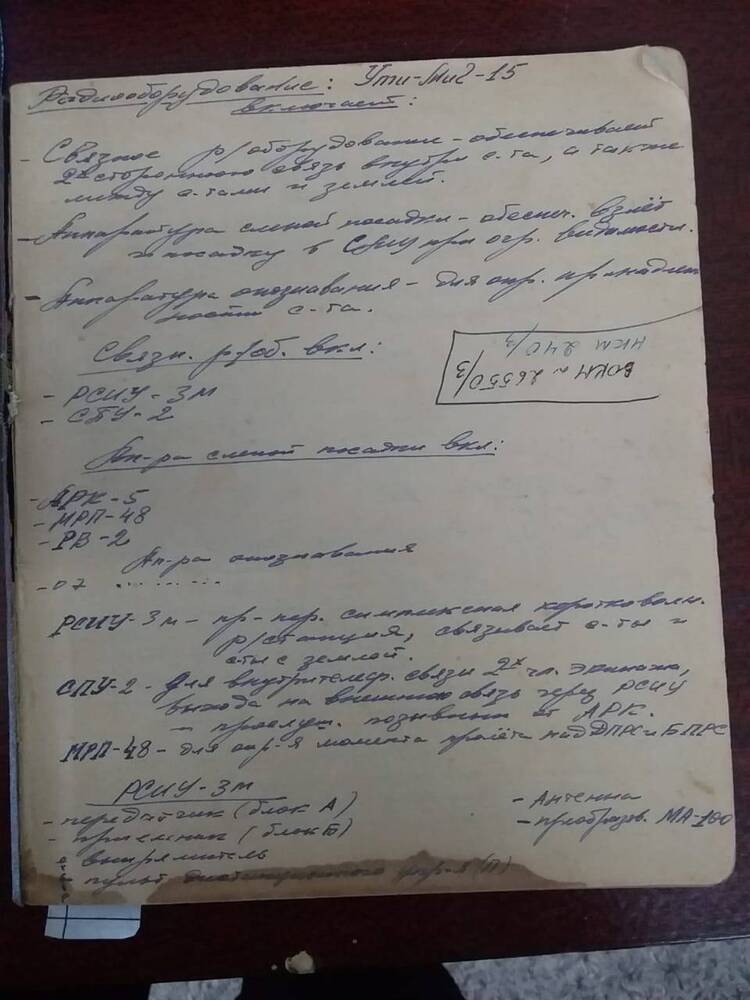 Радиооборудование: Ути-МиГ-15
включает:
- Связное р/оборудование - обеспечивает
2х стороннюю связь внутри с-та, а также
между с-тами и землей.
- Аппаратура слепой посадки - обеспеч. взлёт
и посадку в СМУ при огр. видимости.
- Аппаратура опознавания - для опр. принадлеж
ности с-та.
Связн. р/об. вкл:
ВОКМ 26550/3
НКМ 240/3
- РСИУ-3м
- СПУ-2
Ап-ра слепой посадки вкл:
- АРК-5
- МРП-48
- РВ-2
Ап-ра опознавания
- 07 .........
РСИУ-3м - пр-пер. симплексная коротковолн.
р/станция, связывает с-ты и
с-ты с землой.
СПУ-2 - Для внутрителеф. связи 2х чл. экипажа,
выхода на внешнюю связь через РСИУ
- прослуш. позывных от АРК.
МРП-48 - для опр-я момента пролёта над ДПРС и БПРС
РСИУ-3м
- передатчик (блок А)
- приемник (блок Б)
- выпрямитель
- пульт дистанционного упр-я (П)
- Антенна
- преобразов. МА-100